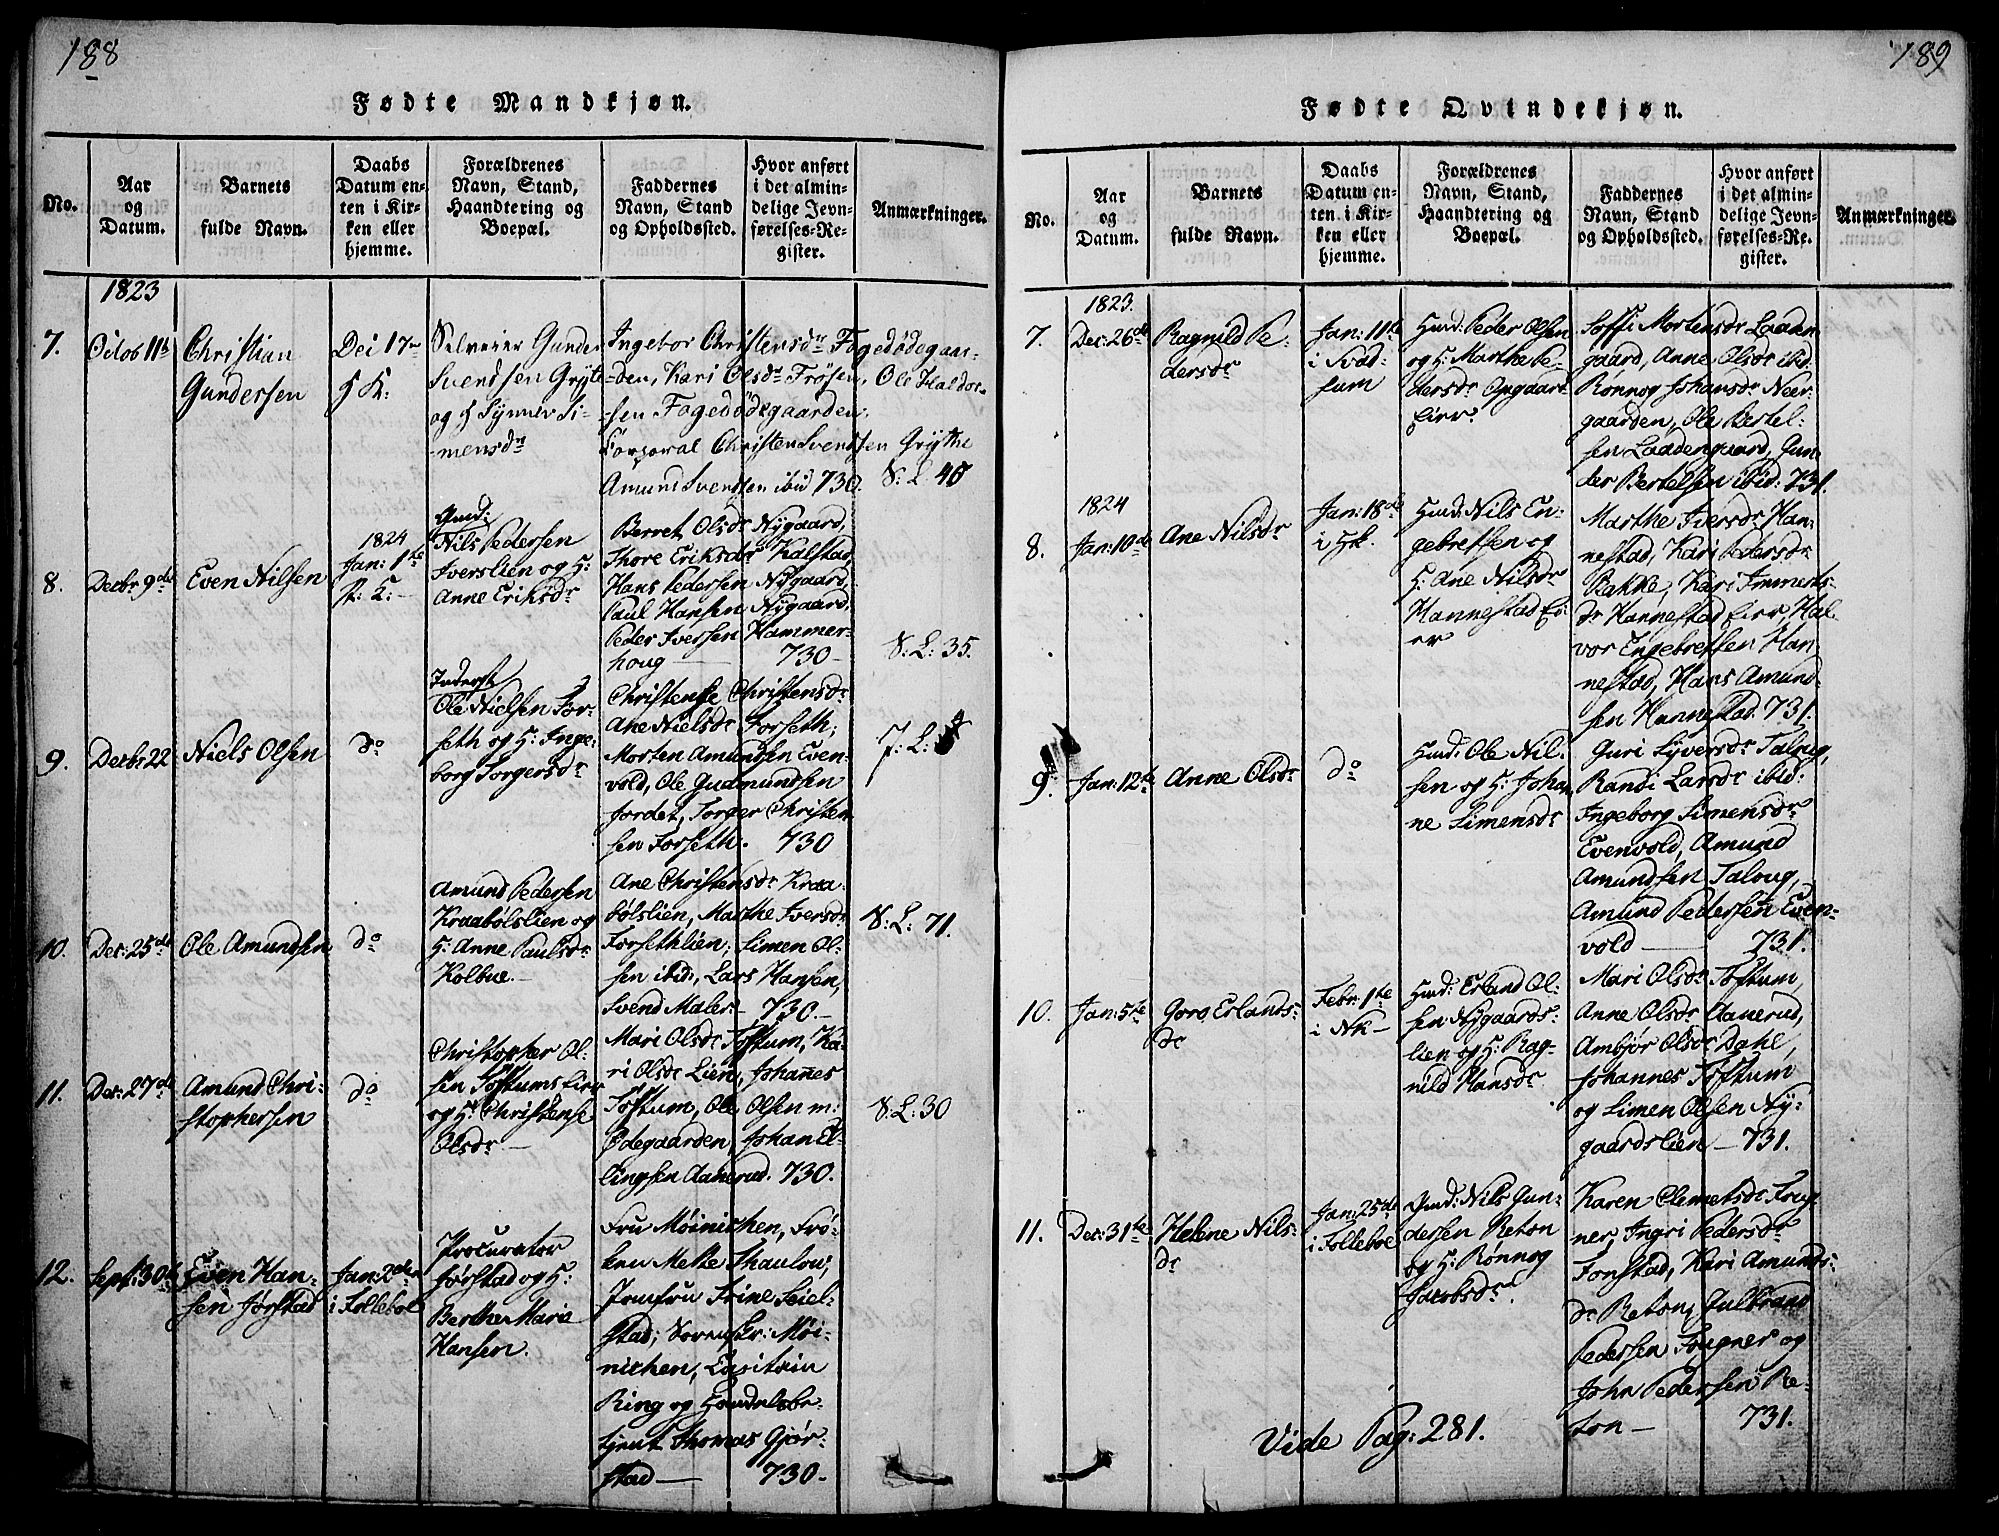 188
Fødte Mandkjøn.
No.
Aar
og
Datum.
Barnets
fulde Navn.
Daabs
Datum en-
ten i Kir-
ken eller
hjemme.
Forældrenes
Navn, Stand,
Haandtering og
Boepæl.
Faddernes
Navn, Stand
og Opholdssted.
Hvor anført
i det almin-
delige Jevn-
førelses-Re-
gister.
Anmærkninger.
1823
7.
Octob 11te
Christian
Gundersen
Gunder
Svendsen Gryte
og H Synnev Si-
mensdr
Ingebor Christensdr Fogedødegaar-
den, Kari Olsdr Frøsen, Ole Haldor-
sen Fogedødegaarden,
Corporal Christen Svendsen Grythe
Amund Svendsen ibid 730.
S: L: 40
8.
Decbr 9de
Even Nilsen
1824
Jan: 1te
Nils Pedersen
Iverslien og H:
Anne Eriksdr
Berret Olsdr Nygaard,
Thore Eriksdr Kalstad,
Hans Pedersen Nygaard,
Paul Hansen Nygaard,
Peder Iversen Hammer-
houg — 730-
S: L: 35.
9.
Decbr: 22
Niels Olsen
do
Inderst
Ole Nielsen For-
seth og H: Inge-
borg Torgersdr
Christense Christensdr
Ane Nielsdr Forseth,
Morten Amundsen Even-
vold, Ole Gudmundsen
Jordet, Torger Christen
sen Forseth. 730
10.
Dec: 25de
Ole Amundsen
do
Amund Pedersen
Kraabølslien og
H: Anne Paulsdr
Kolbue.-
Ane Christensdr Kraa-
bølslien, Marthe Iversdr
Forsethlien, Simen Ol-
sen ibid:, Lars Hansen,
Svend Maler- 730.-
S: L: 71.
11.
Dec: 27de
Amund Chri-
stophersen
do
Christopher Ol-
sen Toftums Eier
og H: Christense
Olsdr —
Mari Olsdr Toftum, Ka-
ri Olsdr Lien, Johannes
Toftum, Ole Olsen m:
Ødegaarden, Johan El-
lingsen Aanerud. 730.
S: L: 30
12.
Sept: 30te
Even Han-
sen Jørstad
Jan: 2den
i Folleboe
Procurator
Jørstad og H:
Berthe Marie
Hansen.
Fru Møinichen, Frø-
ken Mette Thaulow,
Jomfru Trine Seiel-
stad, Soren Skr: Møi-
nichen, Capitain
Ring og Handelsbe-
tjent Thomas Gjør-
stad — 730-
189
Fødte Qvindekjøn.
No.
Aar
og
Datum.
Barnets
fulde Navn.
Daabs
Datum en-
ten i Kir-
ken eller
hjemme.
Forældrenes
Navn, Stand,
Haandtering og
Boepæl.
Faddernes
Navn, Stand
og Opholdssted.
Hvor anført
i det almin-
delige Jevn-
førelses-Re-
gister.
Anmærkninger.
1823.
7.
Dec: 26de
Ragnild Pe-
dersdr
Jan: 11te
Huusm: Peder Olsen
og H: Marthe Pe-
dersdr Opgaard
Eier
Soffi Mortensdr Laaen-
gaard, Anne Olsdr ibid:
Ronnog Johansdr Neer-
gaarden, Ole Bertel-
sen Laadengaard, Gun-
der Bertelsen ibid: 731.
1824
8.
Jan: 10de
Ane Nilsdr
Jan: 18de
i Hk.
Huusm: Nils En-
gebretsen og
H: Ane Nilsdr
Hannestad Ei-
er
Marthe Iversdr Han-
nestad, Kari Pedersdr
Bakke, Kari Immerts-
dr Hannestad Eier, Hal-
vor Engebretsen Han-
nestad, Hans Amund-
sen Hannestad. 731.
9.
Jan: 12te
Anne Olsdr
do
Huusm: Ole Nil-
sen og H: Johan
ne Simensdr
Guri Syversdr Taloug,
Randi Larsdr ibid:
Ingeborg Simensdr
Evenvold, Amund
Amundsen Taloug,
Amund Pedersen Even-
vold — 731.
10.
Jan: 5te
Goro Erlands-
dr
Febr: 1te
i Nk-
Huusm: Erland Ol-
sen Nygaards-
lien og H: Rag-
nild Hansdr
Mari Olsdr Toftum,
Anne Olsdr Aanerud,
Ambjør Olsdr Dahl,
Johannes Toftum
og Simen Olsen Ny-
gaardslien — 731.
11.
Dec: 31te
Helene Nils-
dr
Jan: 25de
i Folleboe
Nils Gun-
dersen Reton
og H: Rønnog
Jacobsdr
Karen Clemetsdr Foug-
ner, Ingri Pedersdr
Fonstad, Kari Amunds-
dr Reton, Gulbrand
Pedersen Fougner og
John Pedersen Re-
ton — 731.
Vide Pag: 281.